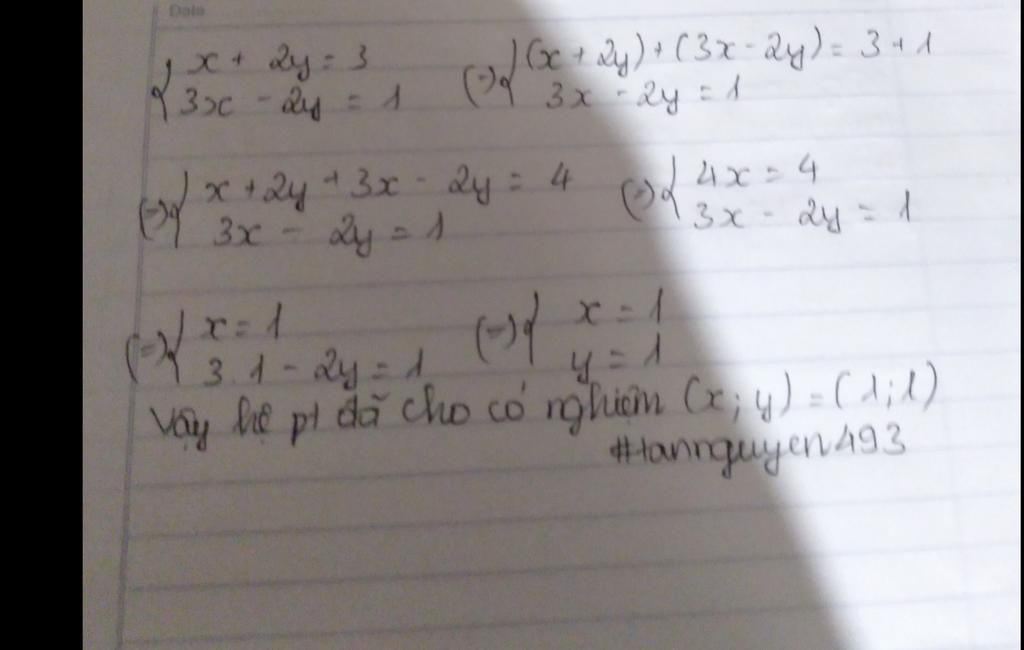 Date
{ x + 2y = 3 (=) { (x + 2y) + (3x - 2y) = 3 + 1
3x - 2y = 1 3x - 2y = 1
(=) { x + 2y + 3x - 2y = 4 (=) { 4x = 4
3x - 2y = 1 3x - 2y = 1
(=) { x = 1 (=) { x = 1
3.1 - 2y = 1 y = 1
Vậy hệ pt đã cho có nghiệm (x; y) = (1; 1)
#tannguyen493